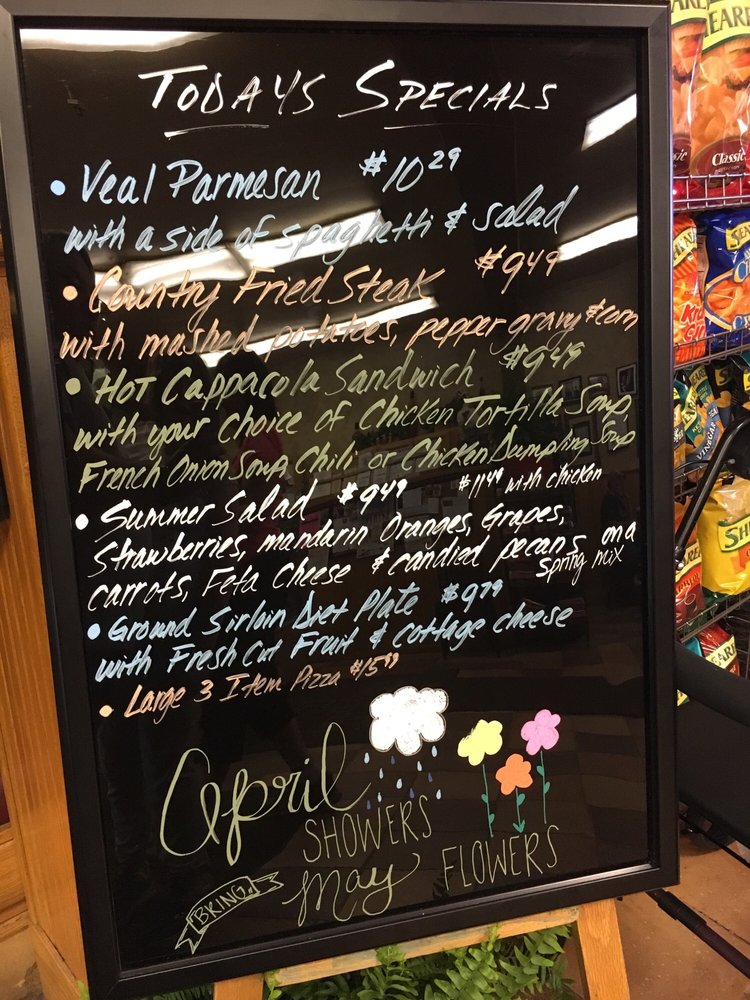 TODAYS SPECIALS
• Veal Parmesan $10.29
with a side of spaghetti & salad
• Country Fried Steak $9.49
with mashed potatoes, pepper gravy & corn
• Hot Cappacola Sandwich $9.49
with your choice of Chicken Tortilla Soup,
French Onion Soup, Chili or Chicken Dumpling Soup
• Summer Salad $9.49 $11.49 with chicken
Strawberries, mandarin Oranges, Grapes,
carrots, Feta Cheese & candied pecans on a
spring mix
• Ground Sirloin Diet Plate $9.79
with Fresh Cut Fruit & cottage cheese
• Large 3 Item Pizza $15.99
April
SHOWERS
BRING
May FLOWERS
Classic
VINEGAR